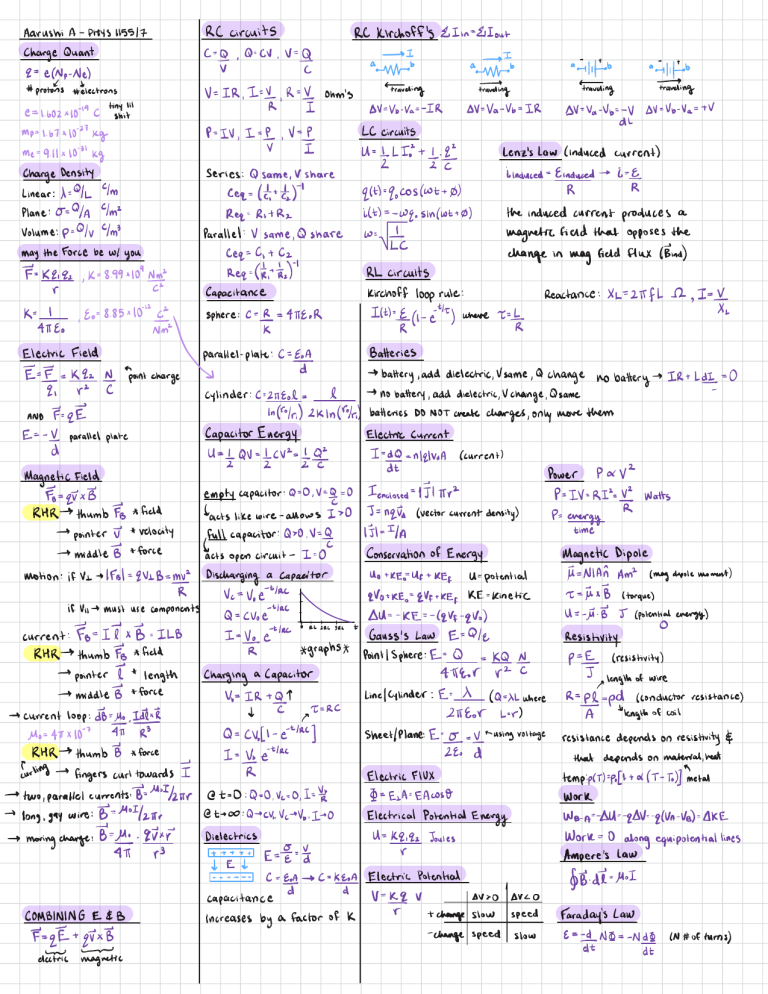 Aarushi A - PHYS 1155/7
Charge Quant
q = e(Np-Ne)
# protons # electrons
e = 1.602 × 10⁻¹⁹ C tiny lil shit
mp = 1.67 × 10⁻²⁷ kg
me = 9.11 × 10⁻³¹ kg
Charge Density
Linear: λ = Q/L C/m
Plane: σ = Q/A C/m²
Volume: ρ = Q/V C/m³
may the Force be w/ you
F = Kq₁q₂/r , K = 8.99 × 10⁹ Nm²/C²
K = 1/4πε₀ , ε₀ = 8.85 × 10⁻¹² C²/Nm²
Electric Field
E = F/q₁ = Kq₂/r² N/C point charge
AND F = qE
E = -V/d parallel plate
Magnetic Field
F_B = qv × B
RHR → thumb F_B * field
→ pointer v * velocity
→ middle B * force
motion: if V⊥ → |F_B| = qV⊥B = mv²/R
if V∥ → must use components
current: F_B = Il × B = ILB
RHR → thumb F_B * field
→ pointer l * length
→ middle B * force
→ current loop: dB = μ₀/4π · Idl × R/R³
μ₀ = 4π × 10⁻⁷
RHR → thumb B * force
curling → fingers curl towards I
→ two, parallel currents: B = μ₀I/2πr
→ long, gey wire: B = μ₀I/2πr
→ moving charge: B = μ₀/4π · qv × r/r³
COMBINING E & B
F = qE + qv × B
electric magnetic
RC circuits
C = Q/V , Q = CV, V = Q/C
V = IR, I = V/R, R = V/I Ohm's
P = IV, I = P/V, V = P/I
Series: Q same, V share
Ceq = (1/C₁ + 1/C₂)⁻¹
Req = R₁ + R₂
Parallel: V same, Q share
Ceq = C₁ + C₂
Req = (1/R₁ + 1/R₂)⁻¹
Capacitance
sphere: C = R/K = 4πε₀R
parallel-plate: C = ε₀A/d
cylinder: C = 2πε₀l/ln(r₀/rᵢ) = l/2K ln(r₀/rᵢ)
Capacitor Energy
U = 1/2 QV = 1/2 CV² = 1/2 Q²/C
empty capacitor: Q = 0, V = Q/C = 0
acts like wire - allows I > 0
full capacitor: Q > 0, V = Q/C
acts open circuit - I = 0
Discharging a Capacitor
Vc = V₀e^-t/RC
Q = CV₀e^-t/RC
I = V₀/R e^-t/RC
*graphs*
Charging a Capacitor
V₀ = IR + Q/C ↑
τ = RC
Q = CV₀[1 - e^-t/RC]
I = V₀/R e^-t/RC
@ t = 0: Q = 0, Vc = 0, I = V₀/R
@ t → ∞: Q → CV₀, Vc → V₀, I → 0
Dielectrics
+ + + + +
E
- - - - -
E = σ/ε = V/d
C = ε₀A/d → C = Kε₀A/d
capacitance
increases by a factor of K
RC Kirchoff's ΣIin = ΣIout
I I
a b a b a b a b
traveling traveling traveling traveling
ΔV = Vb - Va = -IR ΔV = Va - Vb = IR ΔV = Va - Vb = -V ΔV = Vb - Va = +V
LC circuits
U = 1/2 LI₀² + 1/2 q²/C
q(t) = q₀cos(ωt + ø)
i(t) = -ωq₀ sin(ωt + ø)
ω = √1/LC
Lenz's Law (induced current)
Iinduced = εinduced/R → i = ε/R
the induced current produces a
magnetic field that opposes the
change in mag field flux (Bind)
RL circuits
Kirchoff loop rule: Reactance: XL = 2πfL Ω , I = V/XL
I(t) = ε/R (1 - e^-t/τ) where τ = L/R
Batteries
→ battery, add dielectric, V same, Q change no battery → IR + L dI/dt = 0
→ no battery, add dielectric, V change, Q same
batteries DO NOT create charges, only move them
Electric Current
I = dQ/dt = n|q|v_dA (current)
Ienclosed = |J|πr²
J = nqv_d (vector current density)
|J| = I/A
Power P ∝ V²
P = IV = RI² = V²/R Watts
P = energy/time
Conservation of Energy
U₀ + KE₀ = Uf + KEf U = potential
qV₀ + KE₀ = qVf + KEf KE = kinetic
ΔU = -KE = -(qVf - qV₀)
Magnetic Dipole
μ = NIAn Am² (mag dipole moment)
τ = μ × B (torque)
U = -μ · B J (potential energy)
Gauss's Law E = Q/ε
Point/Sphere: E = Q/4πε₀r² = KQ/r² N/C
Line/Cylinder: E = λ/2πε₀r (Q = λL where L = r)
Sheet/Plane: E = σ/2ε₀ = V/d using voltage
Resistivity
ρ = E/J (resistivity)
length of wire
R = ρl/A = ρd (conductor resistance)
length of coil
resistance depends on resistivity &
that depends on material, heat
temp: ρ(T) = ρ₀[1 + α(T - T₀)] metal
Electric Flux
Φ = E⊥A = EA cosθ
Work
W_B-A = -ΔU = -qΔV = q(VA - VB) = ΔKE
Work = 0 along equipotential lines
Electrical Potential Energy
U = Kq₁q₂/r Joules
Ampere's Law
∮B · dl = μ₀I
Electric Potential
V = Kq/r V
ΔV > 0 ΔV < 0
+ charge slow speed
- charge speed slow
Faraday's Law
ε = -d/dt NΦ = -N dΦ/dt (N # of turns)